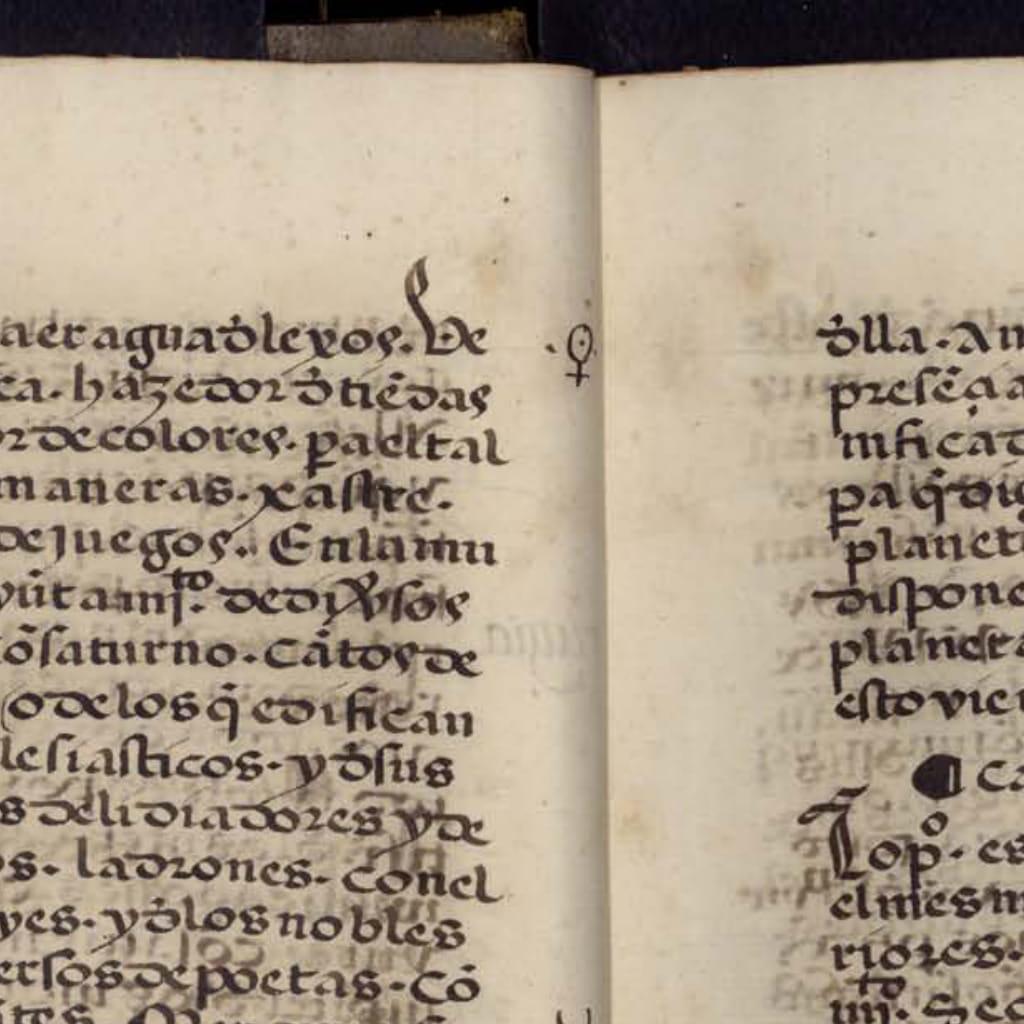 aer aguadlexos. De
ca. hazedor d̄ tiēdas
or de colores. ꝑa el tal
maneras. xastre.
de juegos. En la mu
yūtamj̄to. de diỽsos
cōsaturno. cātos de
o de los q̄ edifican
lesiasticos. y d̄sus
s de lidiadores y de
os. ladrones. Con el
yes. y d̄los nobles
ersos de poetas. Cō
♀
d̄lla. Am
presēcia
nificad
ꝑa q̄ dig
planet
dispone
planeta
esto vie
¶ Ca
Iopo. es
el mes m
riores.